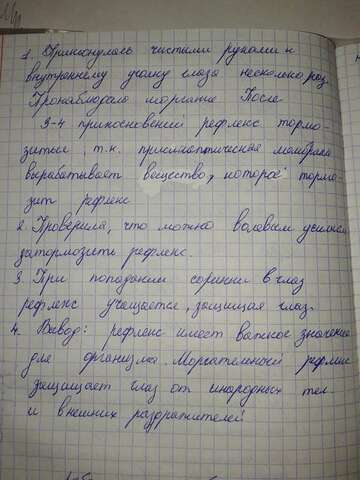 1. Прикоснулась чистыми руками к
внутреннему уголку глаза несколько раз.
Пронаблюдала моргание. После
3-4 прикосновений рефлекс тормо
зиться, т.к. присмаптическая мембрана
вырабатывает вещество, которое тормо-
зит рефлекс
2. Проверила, что можно волевым усилием
затормозить рефлекс.
3. При попадании соринки в глаз
рефлекс учащается, защищая глаз.
4. Вывод: рефлекс имеет важное значение
для организма. Моргательный рефлекс
защищает глаз от инородных тел
и внешних раздражителей